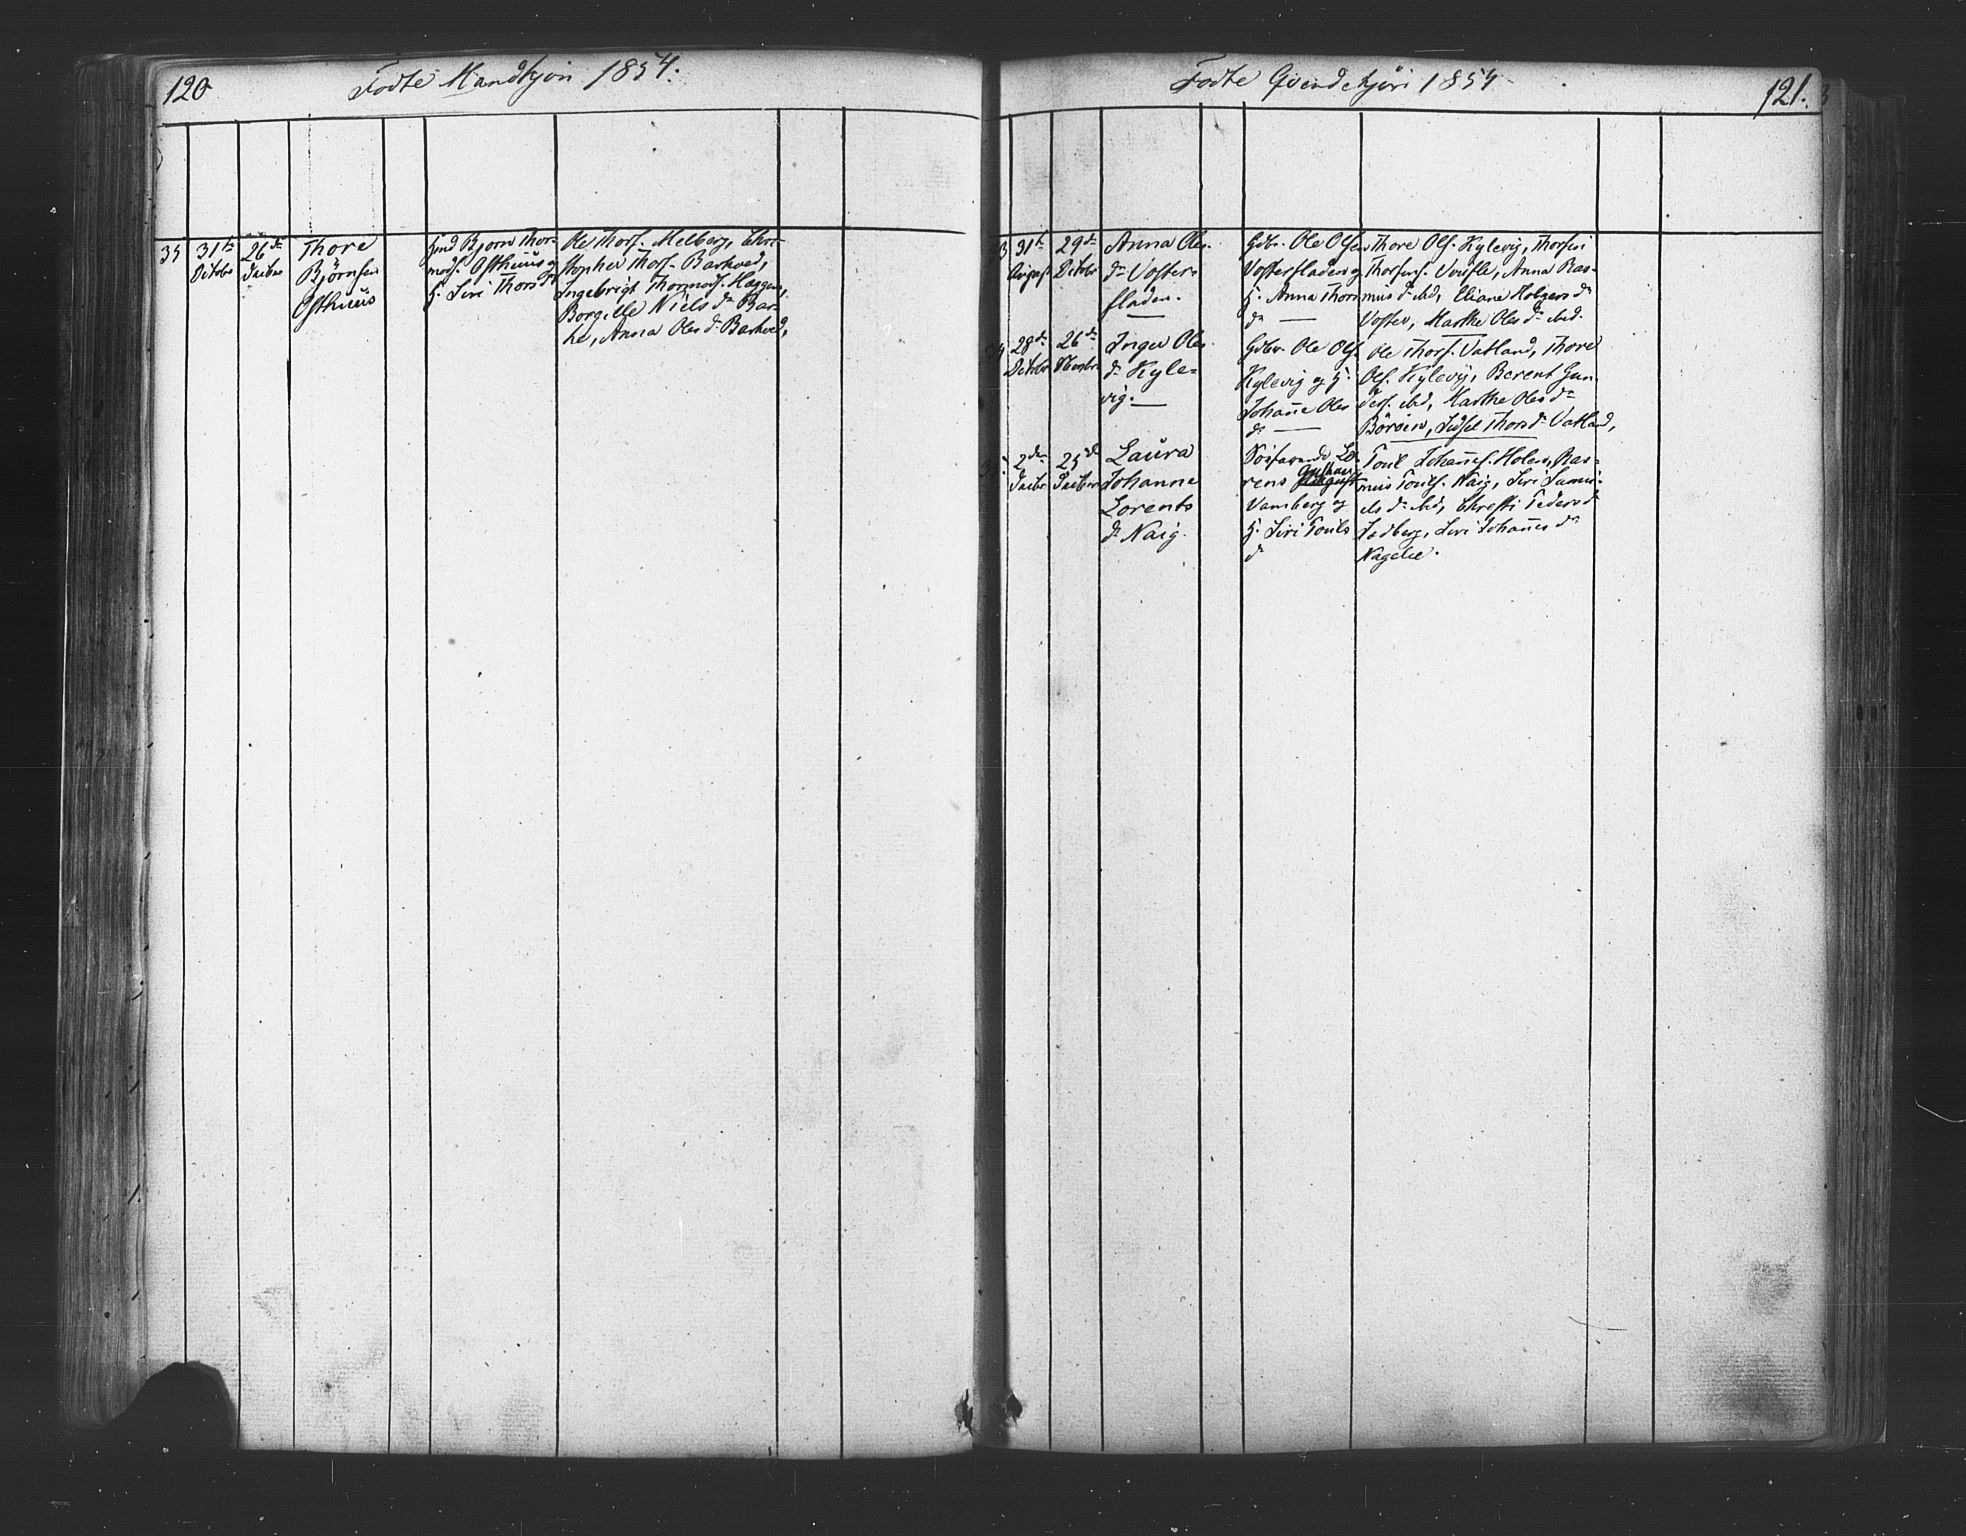 120
Fødte Mandkjøn 1854.
35
31te
Octobr
26de
Decbr
Thore
Bjørnsen
Østhuus
Gmd Bjørn Thor-
mods. Østhuus og
H. Siri Thorsdr
Ole Thors. Melberg, Chri-
stopher Thors. Barkved,
Ingebrigt Thormods. Haggen,
Borgille Niels dr Bar-
ke, Anna Oles dr Barkved,
Fødte Qvindekjøn 1854
121.
3
31te
August
29de
Octobr
Anna Oles
dr Voster-
fladen.
Gdbr. Ole Olsen
Vosterfladen og
H. Anna Thors
dr
Thore Ols. Kylevig, Thorfin
Thorfins. Ura, Anna Ras-
mus dr ibid, Eliane Holgers dr
Voster, Marthe Oles dr ibid.
34
28de
Octobr
26de
Novbr
Inger Oles
dr Kyle-
vig.
Gdbr. Ole Ols.
Kylevig og H.
Johanne Oles
dr
Ole Thors. Vatland, Thore
Ols. Kylevig, Berent Gun-
ders. ibid, Marthe Oles dr
Børøen, Sidsel Thors dr Vatland,
2den
Decbr
25de
Decbr
Laura
Johanne
Lorents
dr Naig.
Søefarende Lo-
rens Gustav
August
Vamberg og
H. Siri Pouls
dr
Poul Johannes. Holen, Ras-
mus Pouls. Naig, Siri Samu-
els dr ibid, Christi Peders dr
Sedberg, Siri Johannes dr
Nagele.